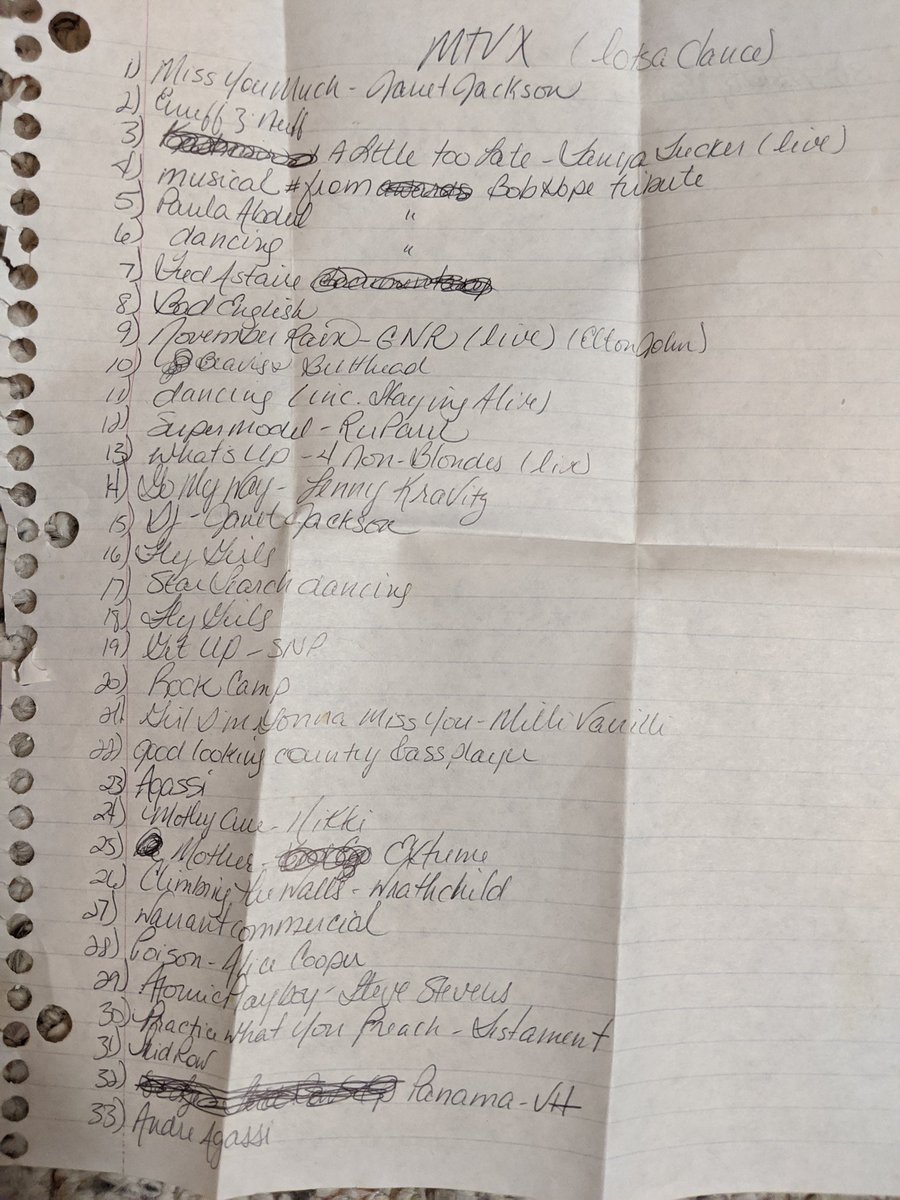 MTV X (lotsa dance)
1) Miss You Much - Janet Jackson
2) Enuff Z Nuff
3) A Little too Late - Tanya Tucker (live)
4) musical # from Bob Hope tribute
5) Paula Abdul "
6) dancing "
7) Fred Astaire
8) Bad English
9) November Rain - GNR (live) (Elton John)
10) Beavis & Butthead
11) dancing (inc. Staying Alive)
12) Supermodel - RuPaul
13) Whats Up - 4 Non-Blondes (live)
14) Go My Way - Lenny Kravitz
15) DJ - Janet Jackson
16) Fly Girls
17) Star Search dancing
18) Fly Girls
19) Get Up - SNP
20) Rock Camp
21) Girl I'm Gonna Miss You - Milli Vanilli
22) good looking country bass player
23) Agassi
24) Motley Crue - Nikki
25) Mother - Extreme
26) Climbing the Walls - Wrathchild
27) Warrant commercial
28) Poison - Alice Cooper
29) Atomic Playboy - Steve Stevens
30) Practice What You Preach - Testament
31) Skid Row
32) Panama - VH
33) Andre Agassi